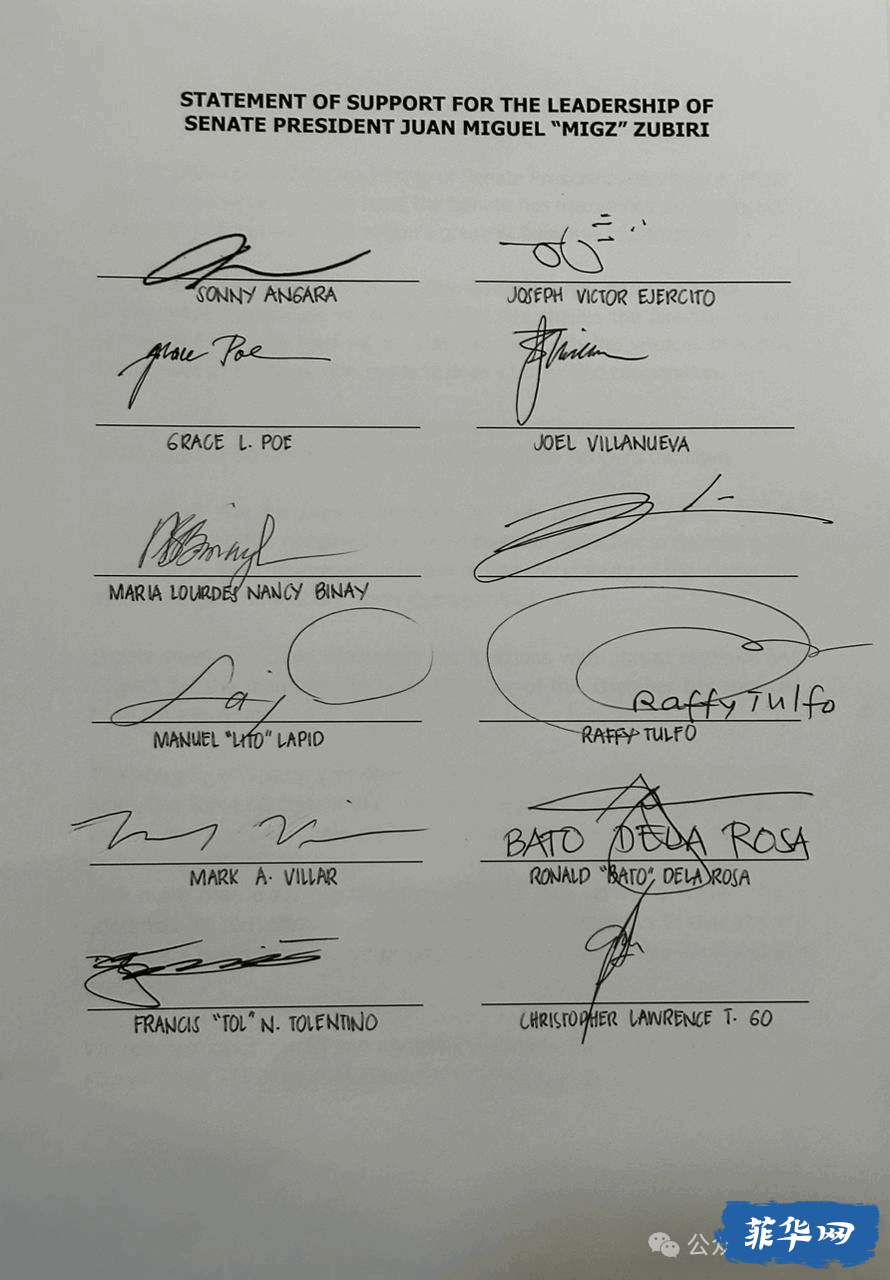 STATEMENT OF SUPPORT FOR THE LEADERSHIP OF
SENATE PRESIDENT JUAN MIGUEL “MIGZ” ZUBIRI
SONNY ANGARA
JOSEPH VICTOR EJERCITO
Grace Poe
GRACE L. POE
JOEL VILLANUEVA
MARIA LOURDES NANCY BINAY
MANUEL "LITO" LAPID
Raffy Tulfo
RAFFY TULFO
MARK A. VILLAR
BATO DELA ROSA
RONALD "BATO" DELA ROSA
FRANCIS "TOL" N. TOLENTINO
CHRISTOPHER LAWRENCE T. GO
公众
菲华网